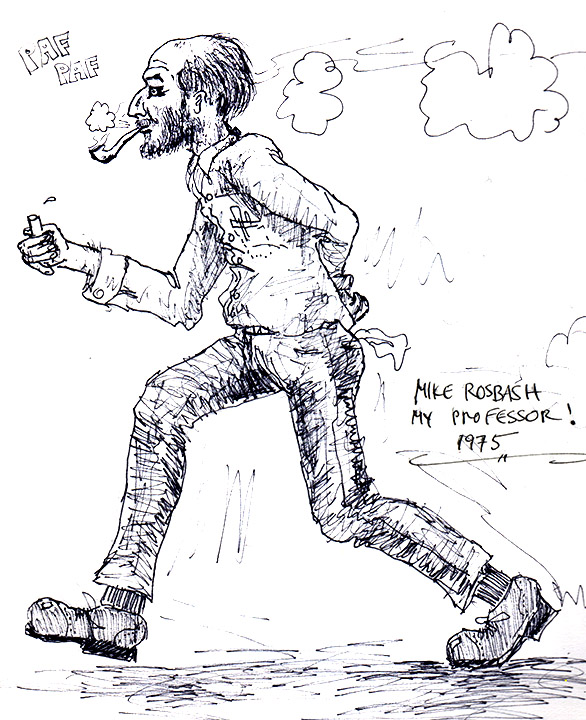 PAF
PAF
MIKE ROSBASH
MY PROFESSOR!
1975